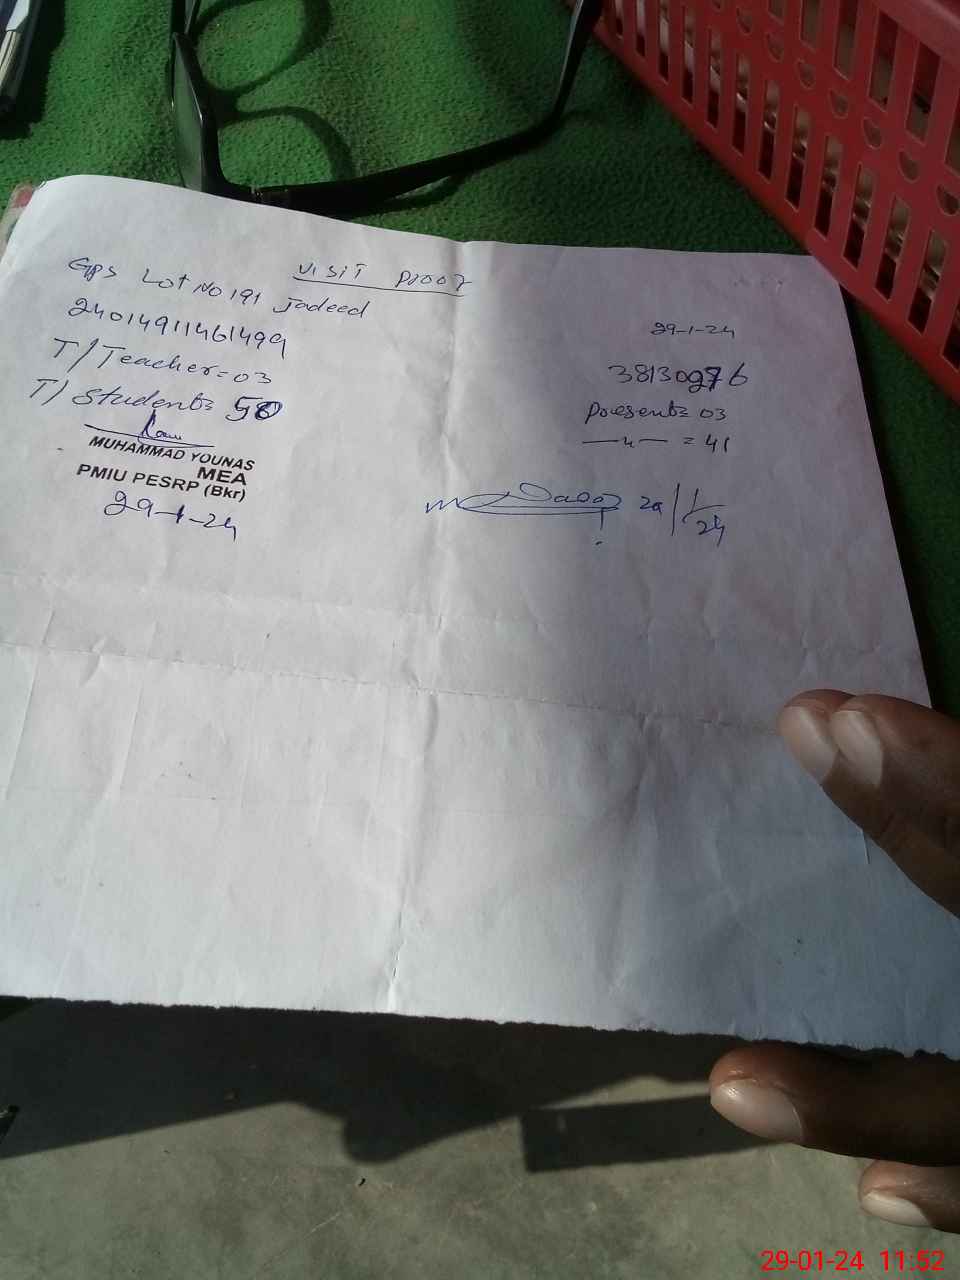 VISIT Proof
Gps Lot No 191 Jadeed
29-1-24
24014911461499
38130976
T/Teacher = 03
Present = 03
T/Students 50
—〃— = 41
MUHAMMAD YOUNAS
MEA
PMIU PESRP (Bkr)
29-1-24
29/1/24
29-01-24 11:52